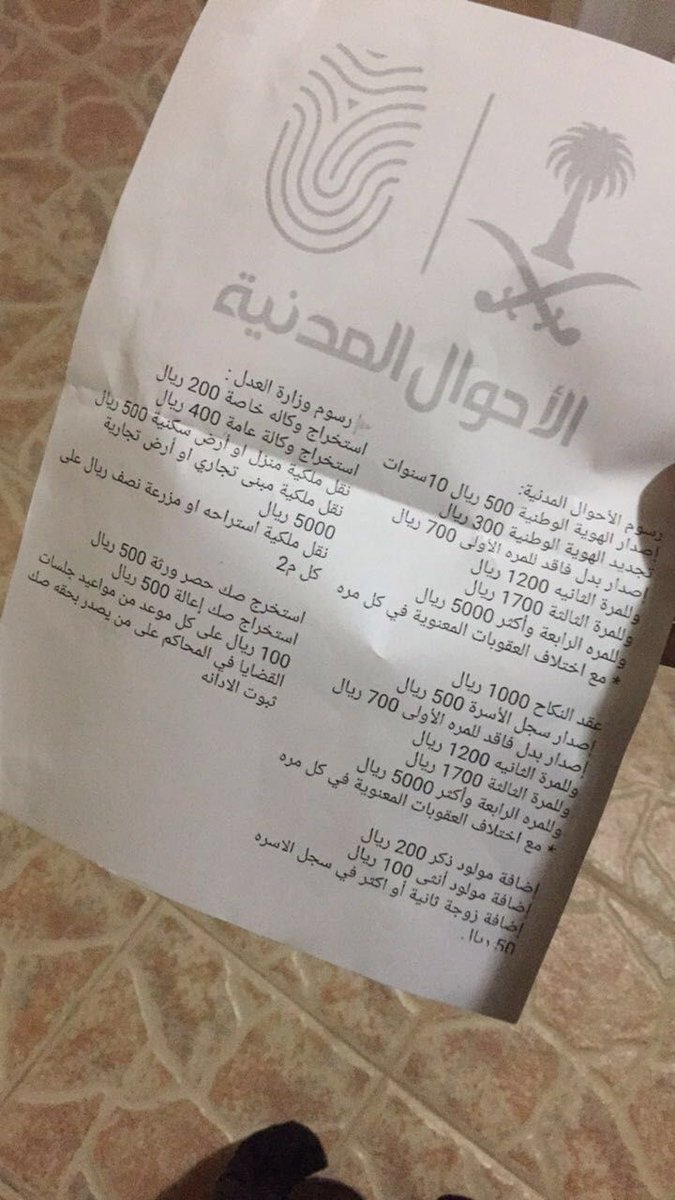 الأحوال المدنية
رسوم الأحوال المدنية:
إصدار الهوية الوطنية 500 ريال 10سنوات
تجديد الهوية الوطنية 300 ريال
إصدار بدل فاقد للمره الأولى 700 ريال
وللمرة الثانيه 1200 ريال
وللمرة الثالثة 1700 ريال
وللمره الرابعة وأكثر 5000 ريال
* مع اختلاف العقوبات المعنوية في كل مره
عقد النكاح 1000 ريال
إصدار سجل الأسرة 500 ريال
إصدار بدل فاقد للمره الأولى 700 ريال
وللمرة الثانيه 1200 ريال
وللمرة الثالثة 1700 ريال
وللمره الرابعة وأكثر 5000 ريال
* مع اختلاف العقوبات المعنوية في كل مره
إضافة مولود ذكر 200 ريال
إضافة مولود أنثى 100 ريال
إضافة زوجة ثانية أو اكثر في سجل الاسره
50 ريال.
رسوم وزارة العدل :
استخراج وكاله خاصة 200 ريال
استخراج وكالة عامة 400 ريال
نقل ملكية منزل او أرض سكنية 500 ريال
نقل ملكية مبنى تجاري او أرض تجارية
5000 ريال
نقل ملكية استراحه او مزرعة نصف ريال على
كل م2
استخرج صك حصر ورثة 500 ريال
استخراج صك إعالة 500 ريال
100 ريال على كل موعد من مواعيد جلسات
القضايا في المحاكم على من يصدر بحقه صك
ثبوت الادانه